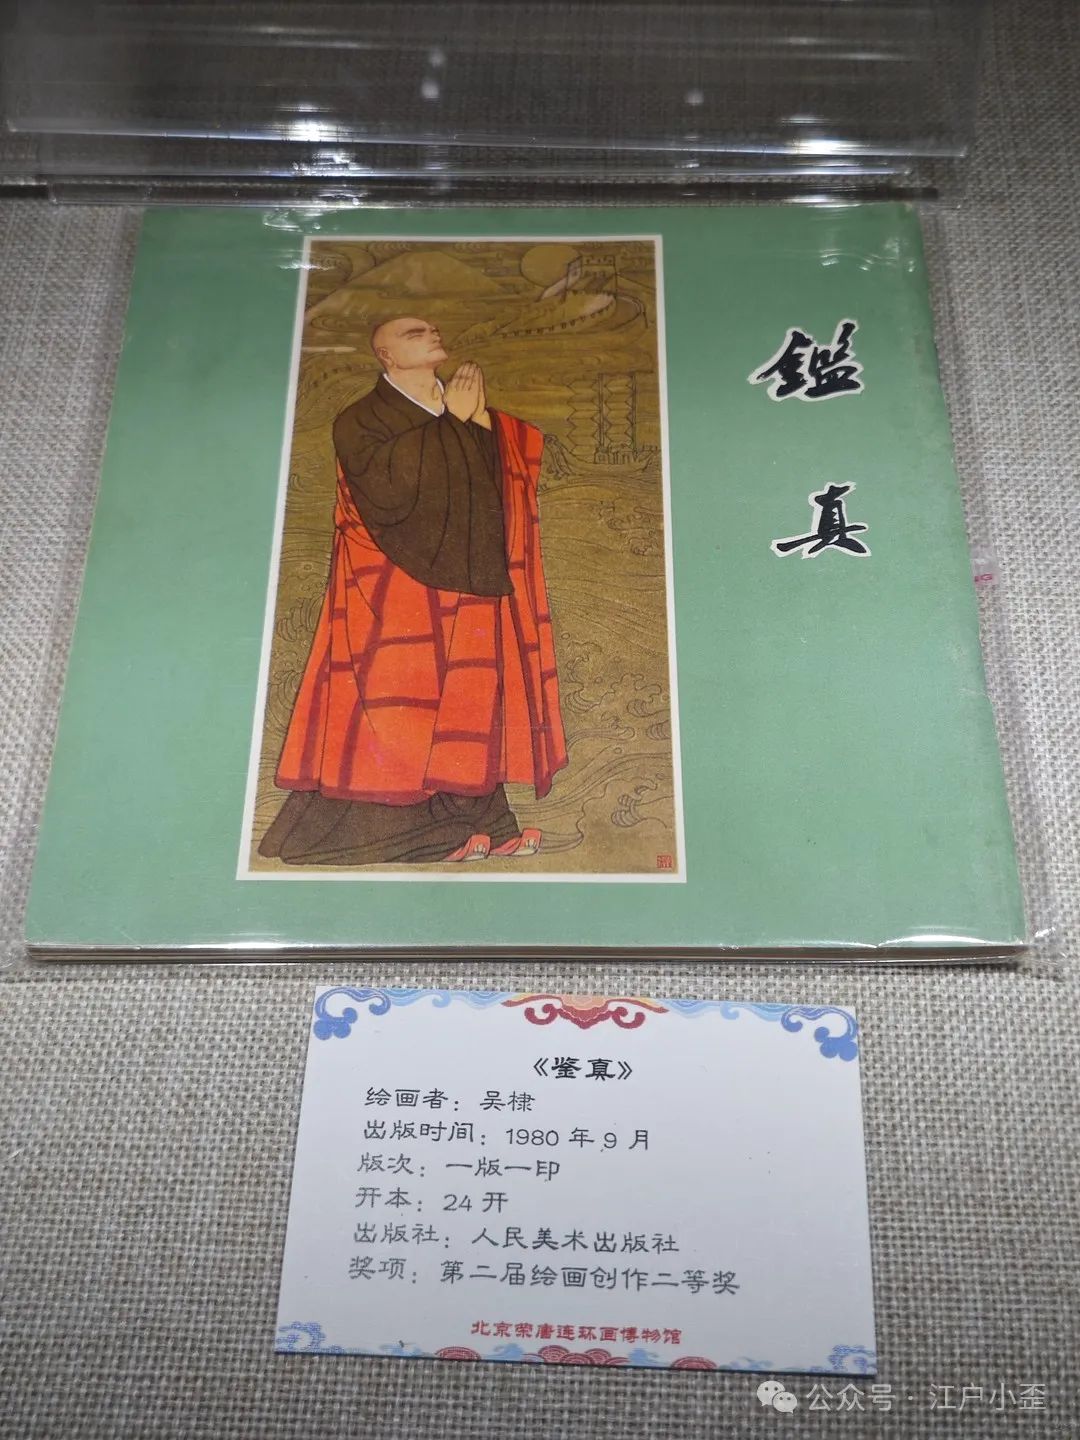 鑑
真
《鉴真》
绘画者：吴棣
出版时间：1980年9月
版次：一版一印
开本：24开
出版社：人民美术出版社
奖项：第二届绘画创作二等奖
北京荣唐连环画博物馆
公众号·江户小歪